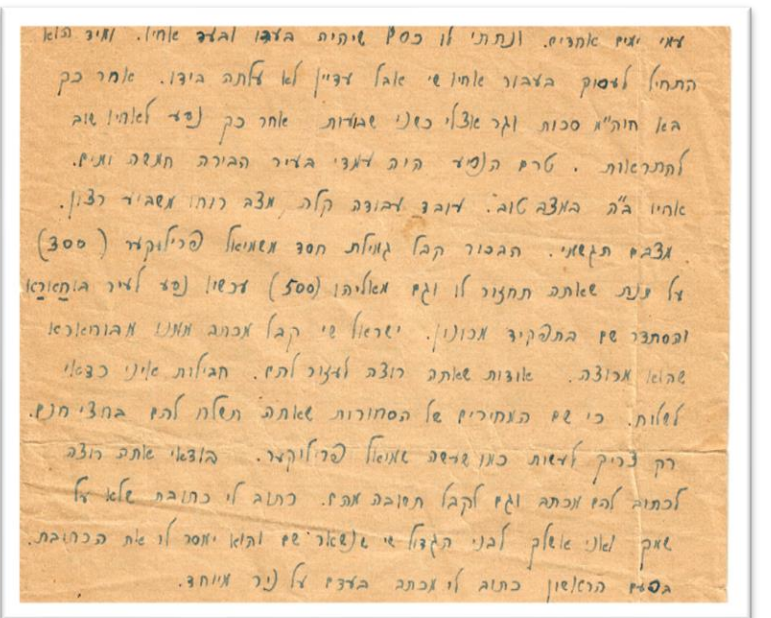 עמי ימים אחדים. ונתתי לו כסף שיהיה בעדו ובעד אחיו. ומיד הוא
התחיל לעסוק בעבור אחיו שי' אבל עדיין לא עלתה בידו. אחר כך
בא חוה"מ סכות וגר אצלי כשני שבועות אחר כך נסע לאחיו שוב
להתראות. טרם הנסיע היה עמדי בעיר הבירה חמשה ימים.
אחיו ב"ה במצב טוב. עובד עבודה קלה מצב רוחו משביע רצון.
מצבם הגשמי. הבכור קבל גמילת חסד משמואל פרילוקער (300)
על מנת שאתה תחזור לו וגם מאליהו (500) עכשיו נסע לעיר בוחארא
והסתדר שם בתפקיד מכונן. ישראל שי' קבל מכתב ממנו מבוחארא
שהוא מרוצה. אודות שאתה רוצה לעזור להם. חבילות אינו כדאי
לשלוח. כי שם המחירים של הסחורות שאתה תשלח להם בחצי חנם.
רק צריך לעשות כמו שעשה שמואל פרילוקער. בודאי אתה רוצה
לכתוב להם מכתב וגם לקבל תשובה מהם. כתוב לי כתובת שלא על
שמך ואני אשלח לבני הגדול שי' שנשאר שם והוא ימסר לו את הכתובת.
בפעם הראשון כתוב לי מכתב בעדם על ניר מיוחד.